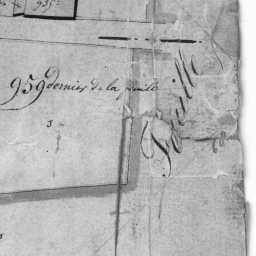 935
959 dernier de la feuille
3
Feuille